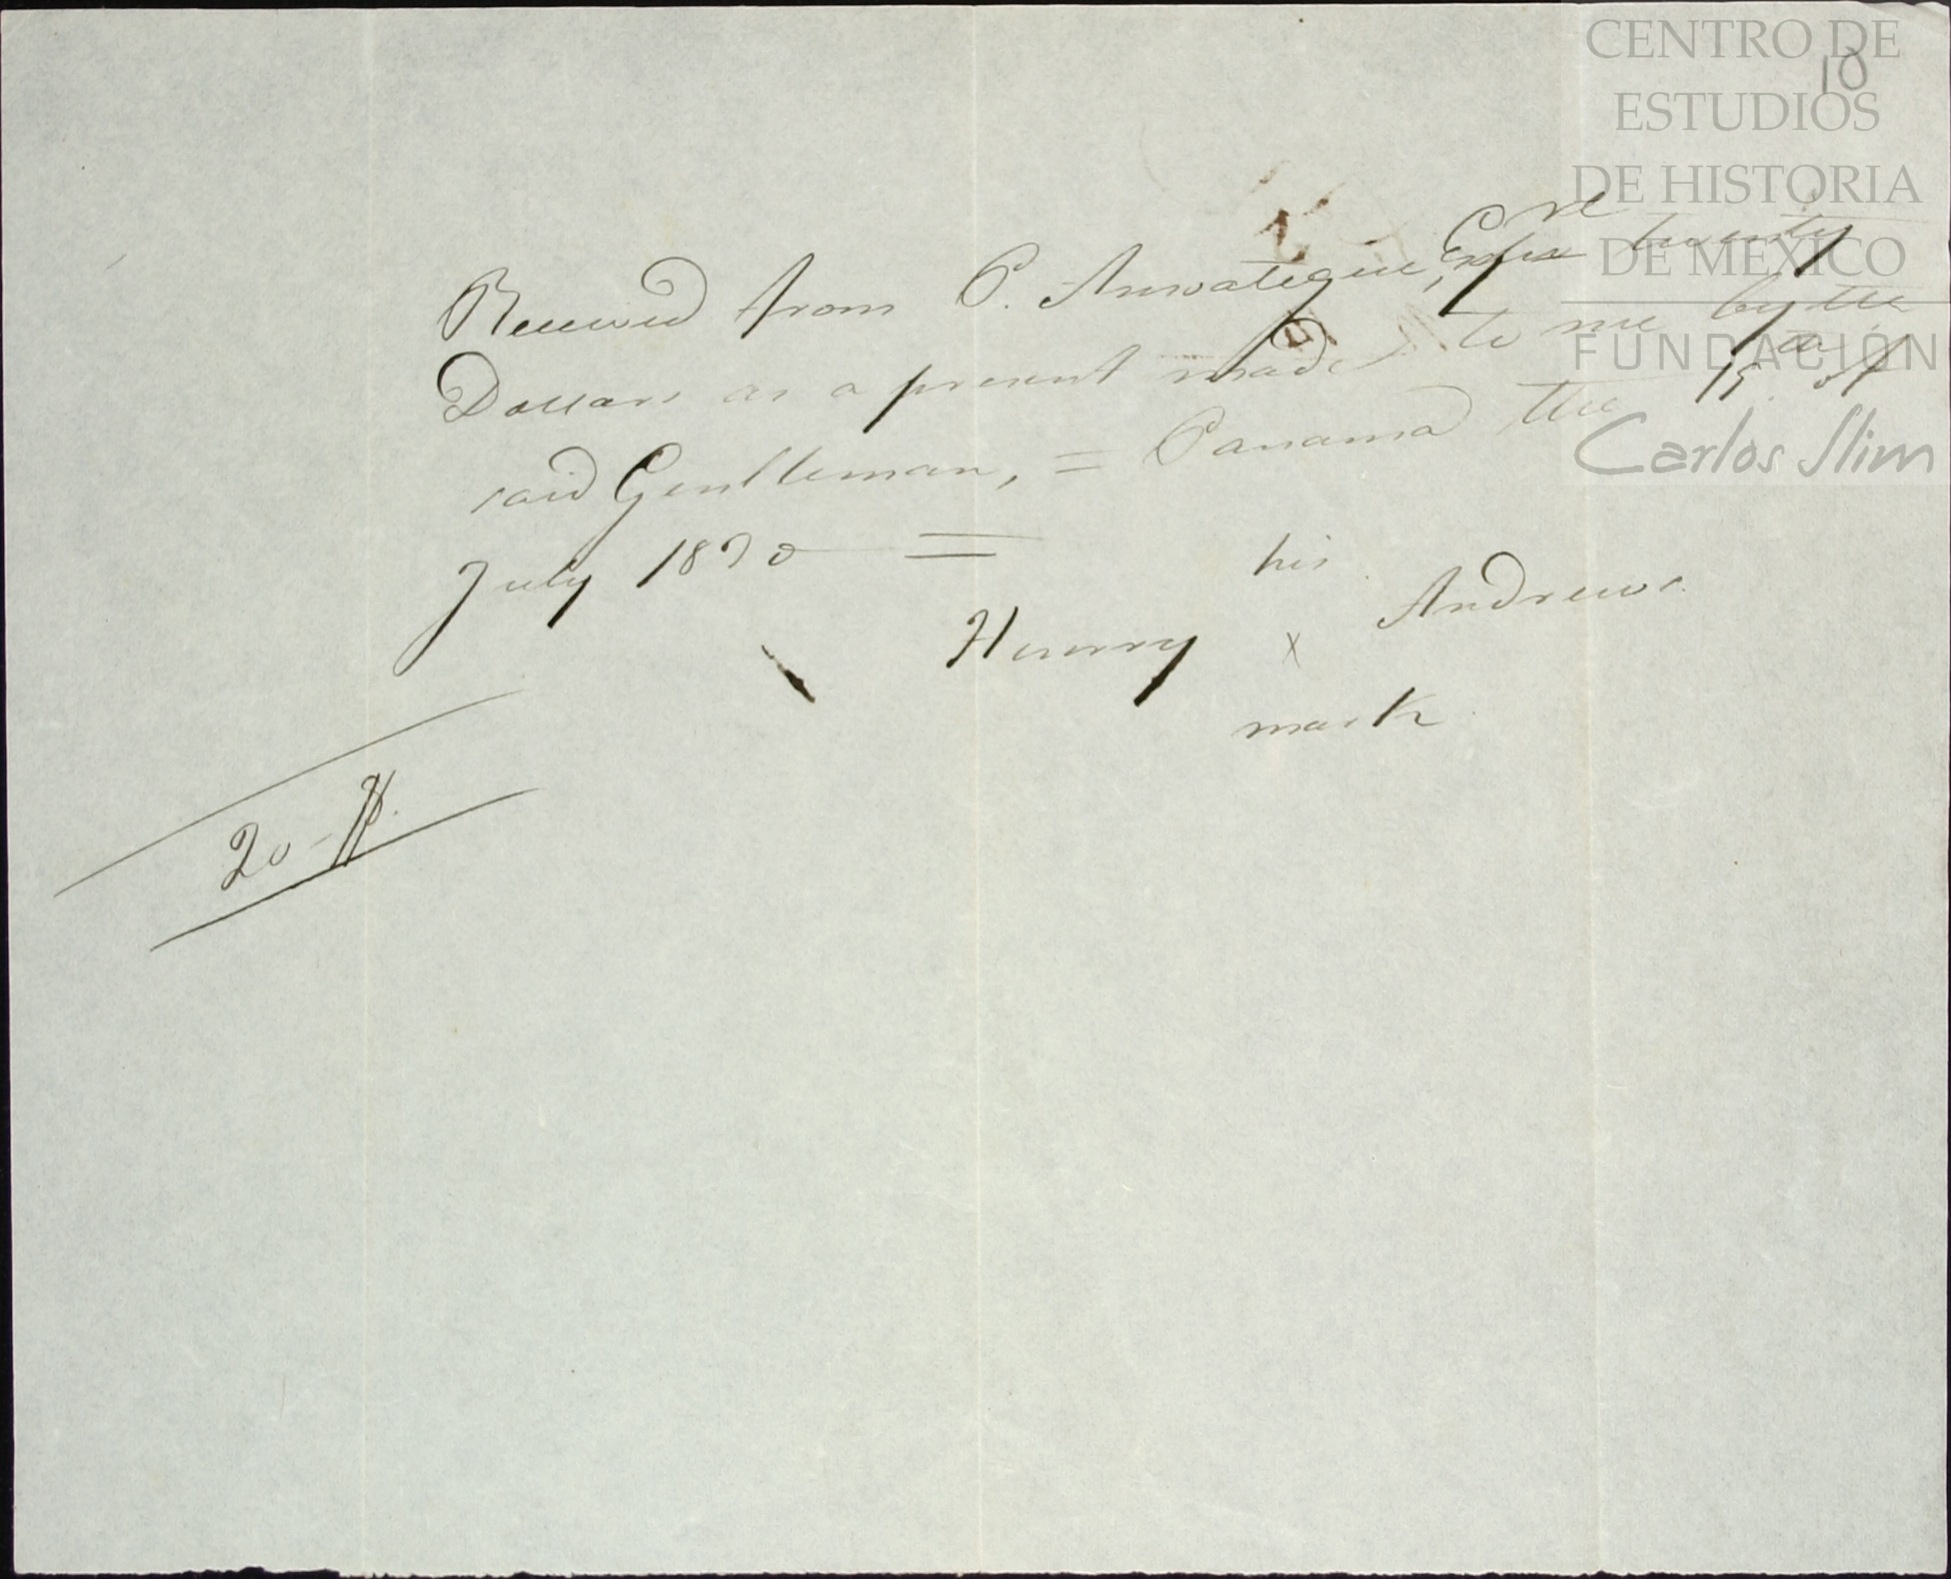 CENTRO DE
ESTUDIOS
DE HISTORIA
DE MÉXICO
FUNDACIÓN
Carlos Slim
10
Received from P. twenty
Dollars as a present made to me by the
said Gentleman, = Panama the 15. of
July 1870 =
his
Henrry x Andrews.
mark
20-$.